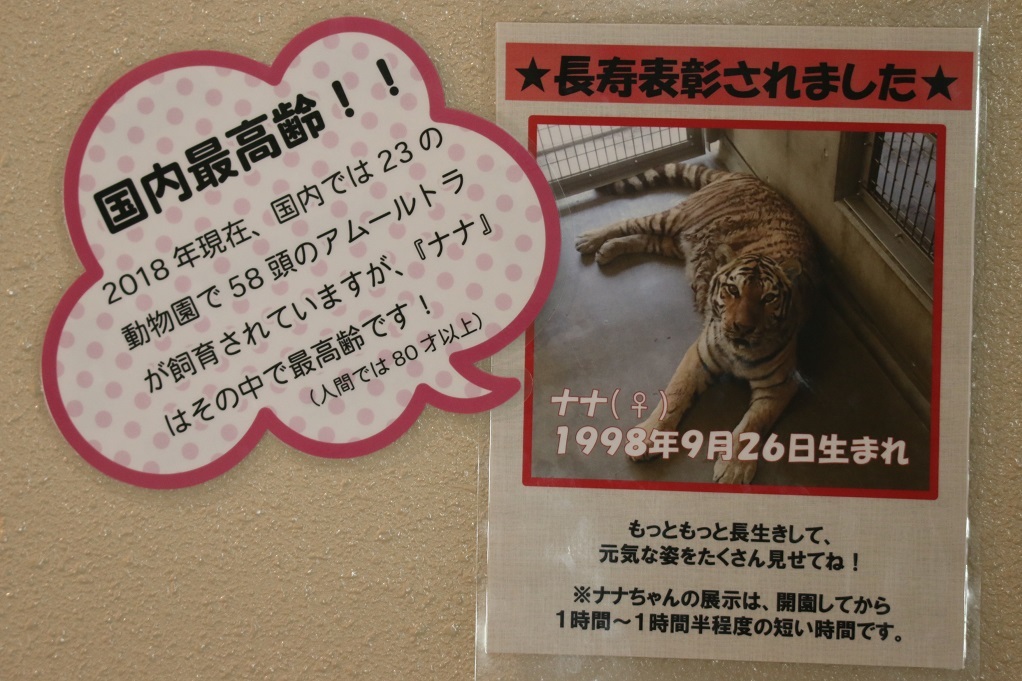 国内最高齢！！
2018年現在、国内では23の
動物園で58頭のアムールトラ
が飼育されていますが、『ナナ』
はその中で最高齢です！
（人間では80才以上）
★長寿表彰されました★
ナナ(♀)
1998年9月26日生まれ
もっともっと長生きして、
元気な姿をたくさん見せてね！
※ナナちゃんの展示は、開園してから
1時間～1時間半程度の短い時間です。